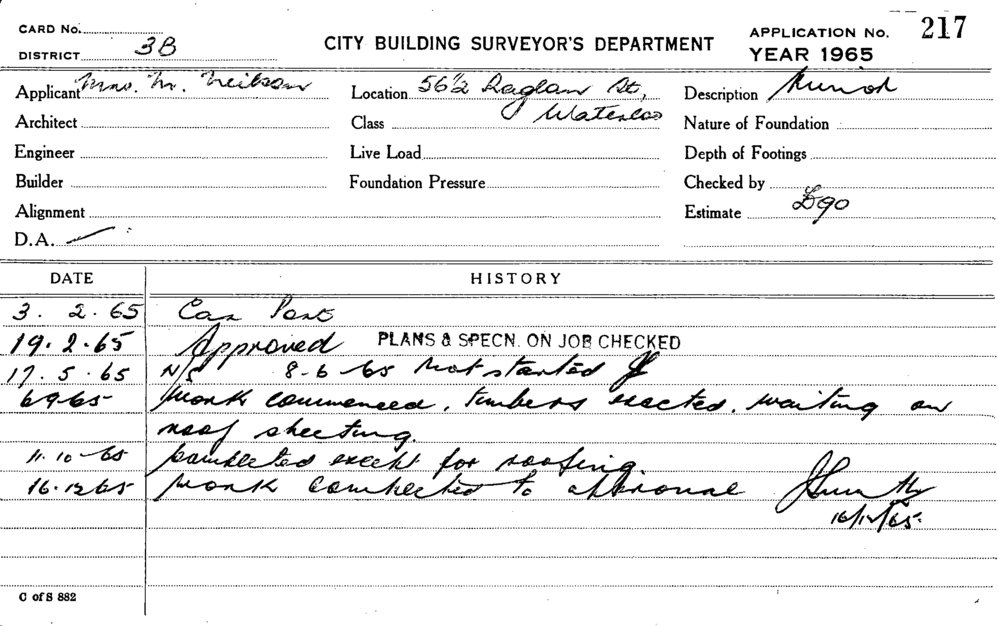 CARD No.
DISTRICT 3B
CITY BUILDING SURVEYOR'S DEPARTMENT
APPLICATION No. 217
YEAR 1965
Applicant Mrs. M. Neilson Location 56½ Raglan St, Description Minor
Waterloo
Architect Class Nature of Foundation
Engineer Live Load Depth of Footings
Builder Foundation Pressure Checked by
Alignment Estimate £90
D.A. ✓
DATE HISTORY
3. 2. 65 Car Port
19. 2. 65 Approved PLANS & SPECN. ON JOB CHECKED
17. 5. 65 N/S 8-6-65 Not started
6-9-65 Work commenced, timbers erected, waiting on
roof sheeting.
11. 10-65 Completed except for roofing.
16. 12 65 Work completed to approval
16/12/65.
C of S 882